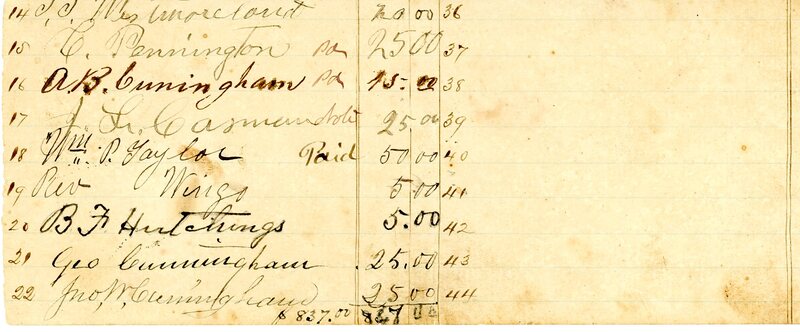 14 Westmoreland 20 00 36
15 C. Pennington pd 25 00 37
16 A.B. Cuningham pd 15.00 38
17 J. Casman Note 25.00 39
18 Wm. P. Taylor Paid 50.00 40
19 Rev Wingo 5.00 41
20 B F Hutchings 5.00 42
21 Geo Cunningham 25.00 43
22 Jno, W. Cuningham 25 00 44
$ 837.00 837 00